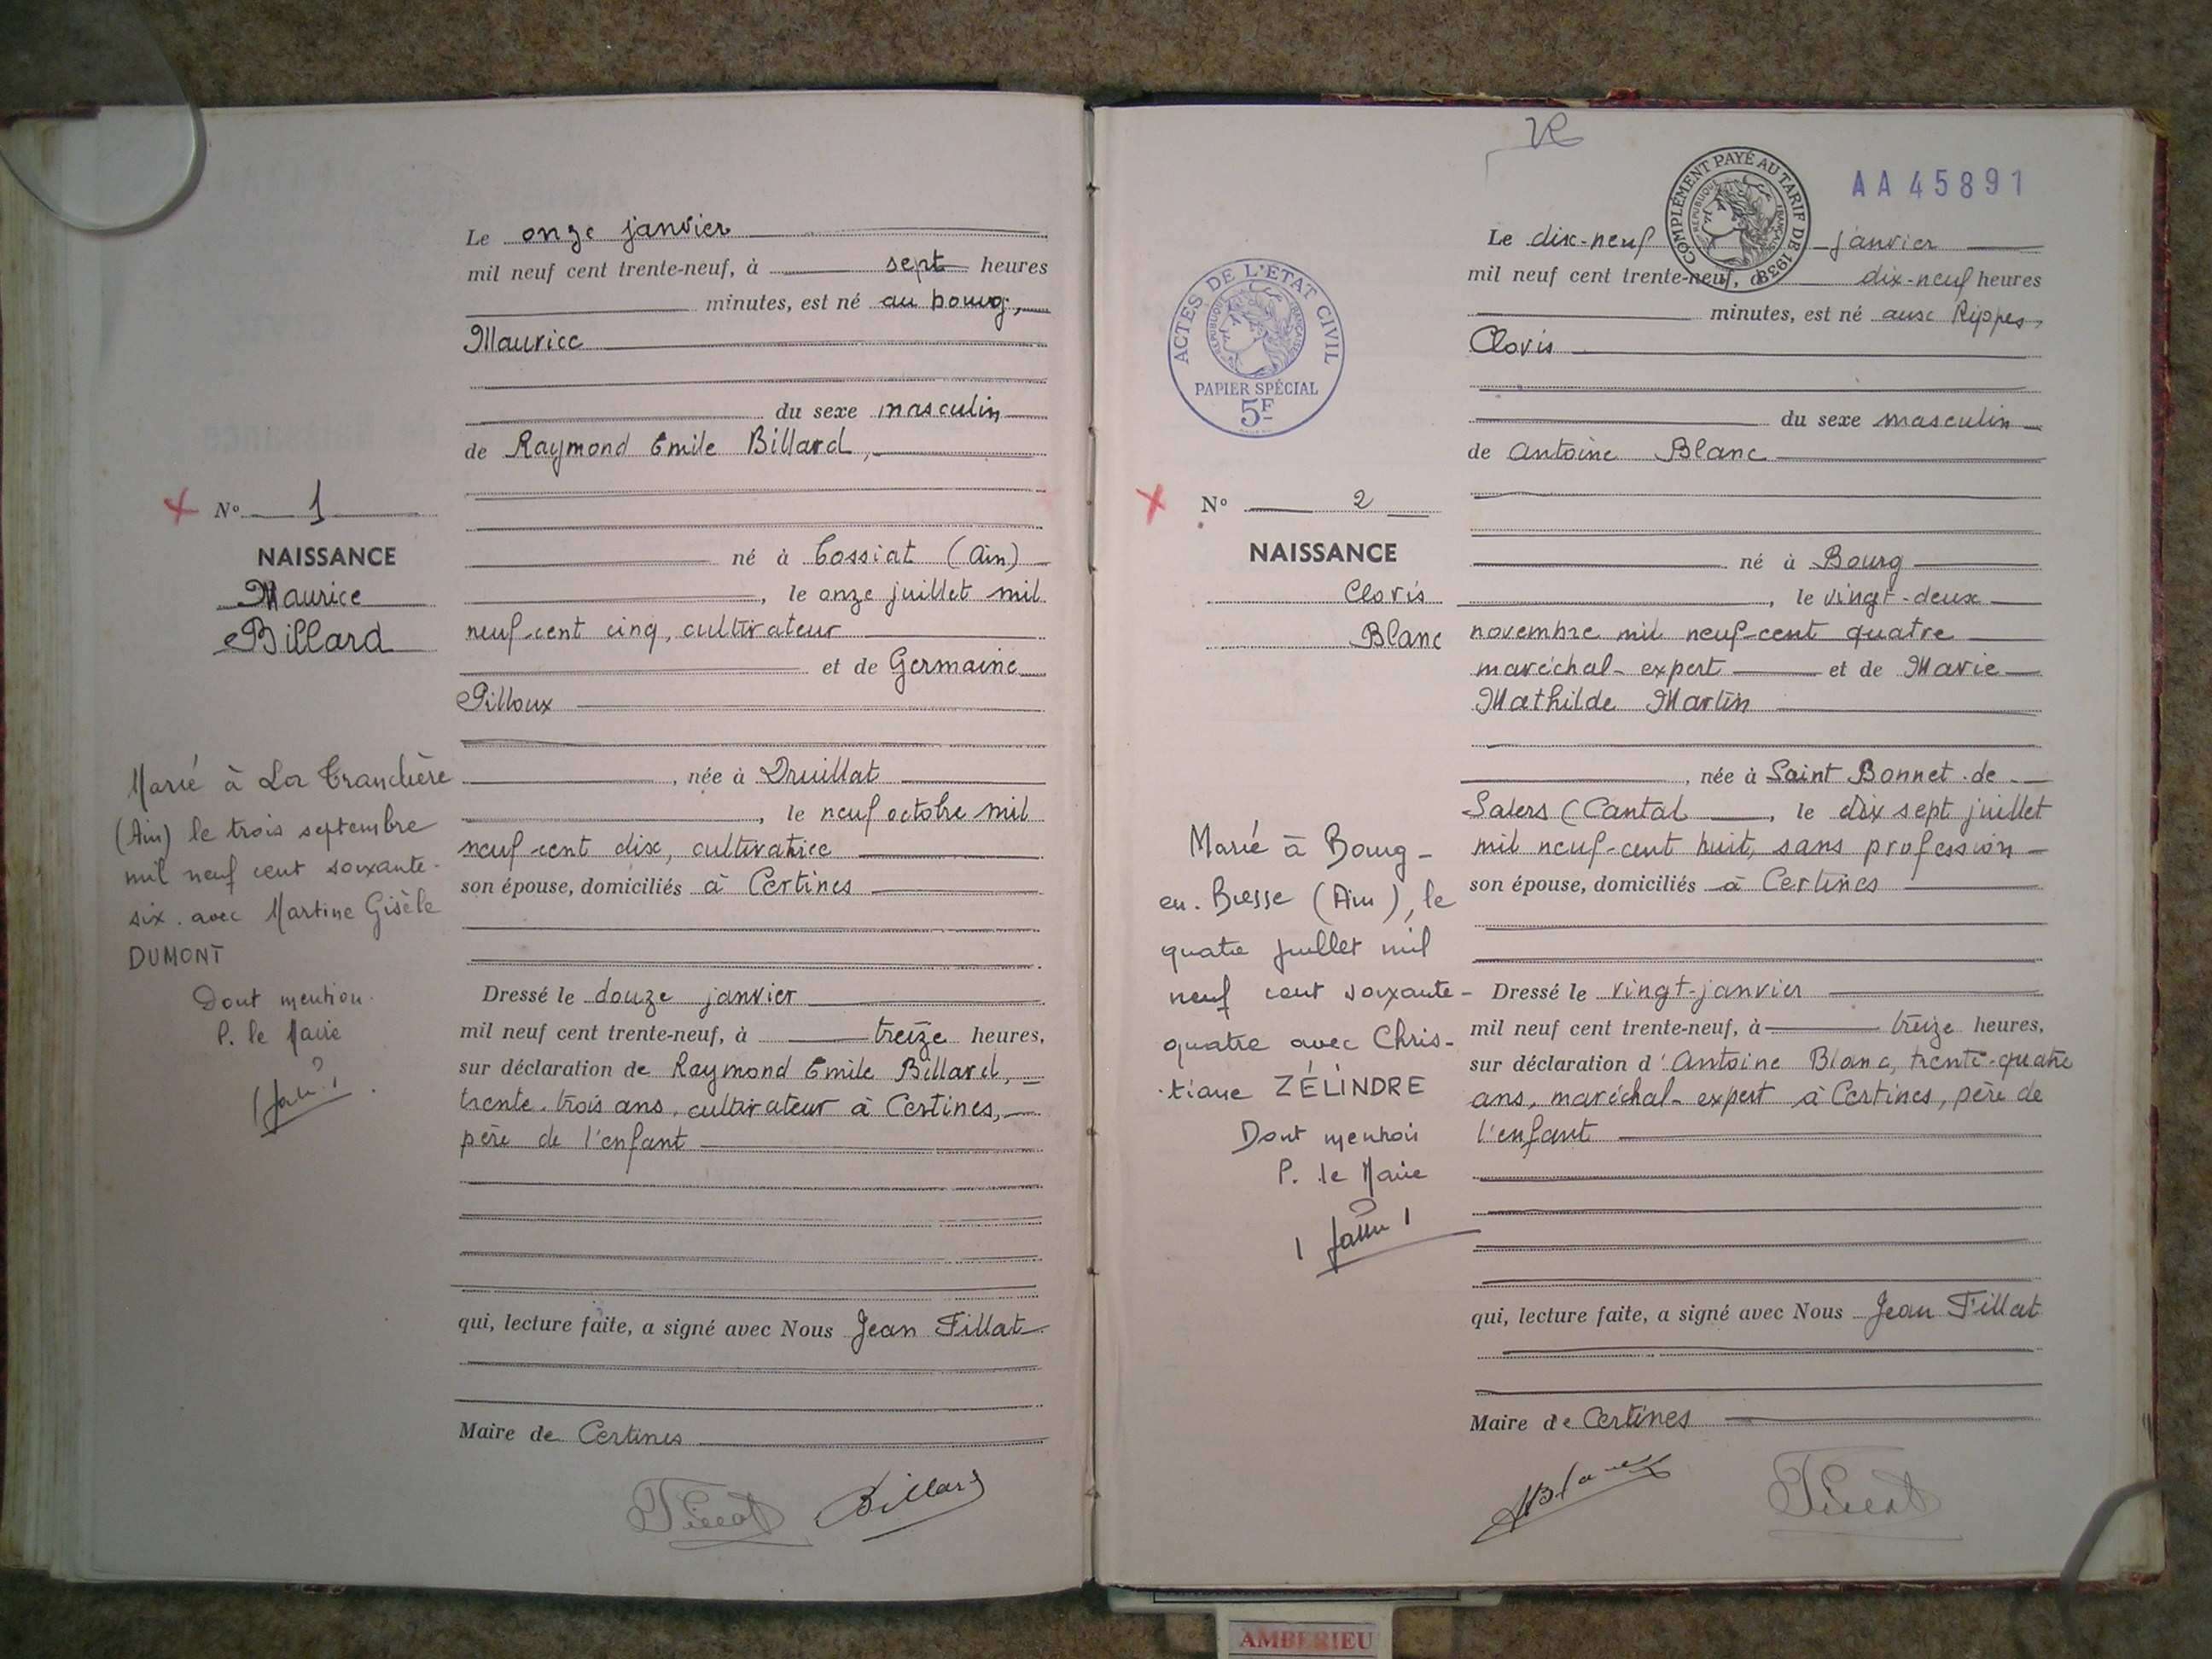 Le onze janvier
mil neuf cent trente-neuf, à sept heures
minutes, est né au bourg,
Maurice
du sexe masculin
de Raymond Emile Billard,
N° 1
NAISSANCE
Maurice
Billard
né à Tossiat (Ain)
, le onze juillet mil
neuf-cent cinq, cultivateur
et de Germaine
Pilloux
, née à Druillat
, le neuf octobre mil
neuf-cent dix, cultivatrice
son épouse, domiciliés à Certines
Marié à La Tranclière
(Ain) le trois septembre
mil neuf cent soixante-
six. avec Martine Gisèle
DUMONT
Dont mention.
P. le Maire
Dressé le douze janvier
mil neuf cent trente-neuf, à treize heures,
sur déclaration de Raymond Emile Billard,
trente-trois ans, cultivateur à Certines,
père de l'enfant
qui, lecture faite, a signé avec Nous Jean Tillat
Maire de Certines
Billard
AA 45891
COMPLÉMENT PAYÉ AU TARIF DE 1939
RÉPUBLIQUE FRANÇAISE
ACTES DE L'ÉTAT CIVIL
RÉPUBLIQUE FRANÇAISE
PAPIER SPÉCIAL
5F
Le dix-neuf janvier
mil neuf cent trente-neuf, à dix-neuf heures
minutes, est né aux Rippes,
Clovis
du sexe masculin
de Antoine Blanc
N° 2
NAISSANCE
Clovis
Blanc
né à Bourg
, le vingt-deux
novembre mil neuf-cent quatre
maréchal-expert et de Marie
Mathilde Martin
, née à Saint Bonnet-de
Salers (Cantal , le dix sept juillet
mil neuf-cent huit, sans profession
son épouse, domiciliés à Certines
Marié à Bourg-
en-Bresse (Ain), le
quatre juillet mil
neuf cent soixante-
quatre avec Chris-
tiane ZÉLINDRE
Dont mention
P. le Maire
Dressé le vingt-janvier
mil neuf cent trente-neuf, à treize heures,
sur déclaration d'Antoine Blanc, trente-quatre
ans, maréchal-expert à Certines, père de
l'enfant
qui, lecture faite, a signé avec Nous Jean Tillat
Maire de Certines
ABlanc
AMBERIEU